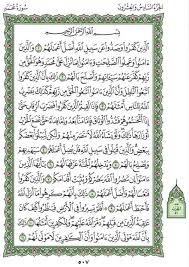 الجزء السادس والعشرون
سورة محمد
بسم الله الرحمن الرحيم
الذين كفروا وصدوا عن سبيل الله أضل أعمالهم ١ والذين
ءامنوا وعملوا الصلحت وءامنوا بما نزل على محمد وهو الحق من
ربهم كفر عنهم سيـاتهم وأصلح بالهم ٢ ذلك بأن الذين
كفروا اتبعوا البطل وأن الذين ءامنوا اتبعوا الحق من ربهم
كذلك يضرب الله للناس أمثلهم ٣ فإذا لقيتم الذين كفروا
فضرب الرقاب حتى إذا أثخنتموهم فشدوا الوثاق فإما منا بعد
وإما فداء حتى تضع الحرب أوزارها ذلك ولو يشاء الله لانتصر منهم
ولكن ليبلوا بعضكم ببعض والذين قتلوا في سبيل الله فلن
يضل أعملهم ٤ سيهديهم ويصلح بالهم ٥ ويدخلهم الجنة
عرفها لهم ٦ يأيها الذين ءامنوا إن تنصروا الله ينصركم
ويثبت أقدامكم ٧ والذين كفروا فتعسا لهم وأضل
أعملهم ٨ ذلك بأنهم كرهوا ما أنزل الله فأحبط أعملهم ٩
أفلم يسيروا في الأرض فينظروا كيف كان عقبة الذين من قبلهم
دمر الله عليهم وللكفرين أمثلها ١٠ ذلك بأن الله
مولى الذين ءامنوا وأن الكفرين لا مولى لهم ١١
٥٠٧